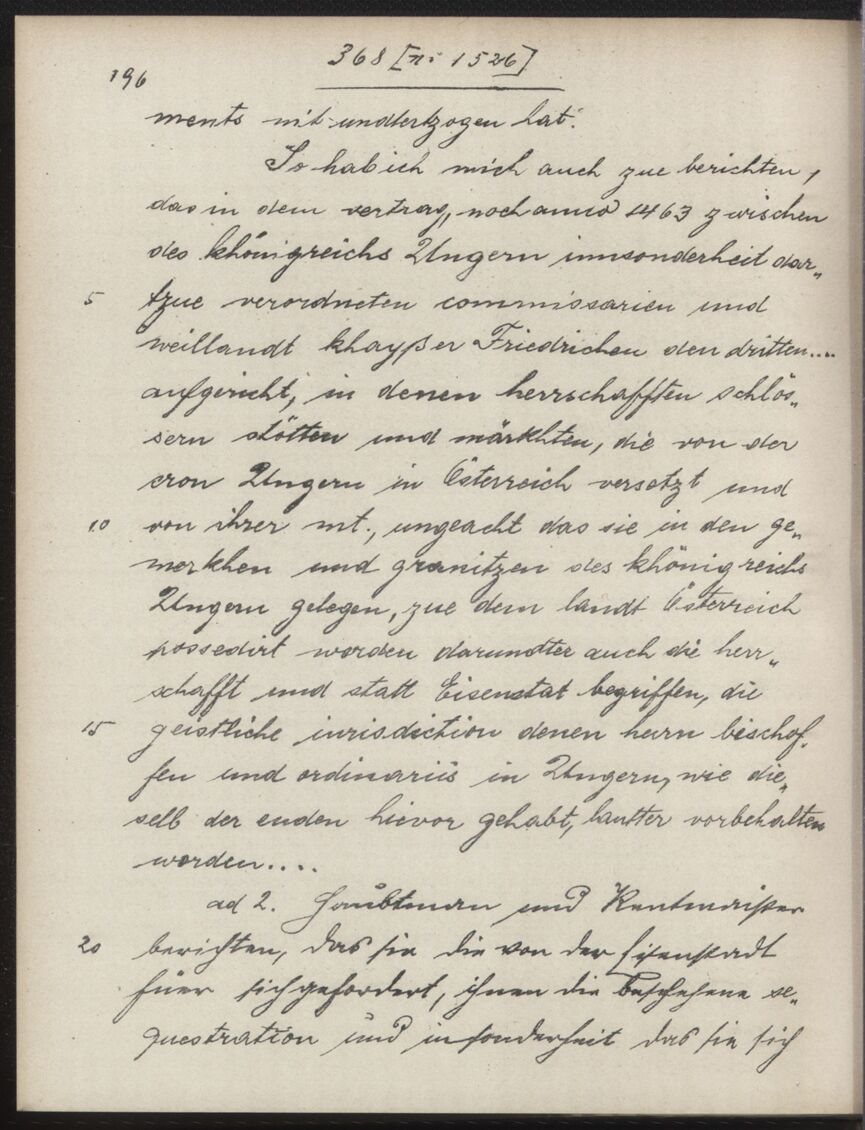 368 [n: 1526]
196
ments nit undertzogen hat.
So hab ich mich auch zue berichten,
das in dem vertrag, noch anno 1463 zwischen
des khönigreichs Ungern innsonderheit dar„
5 tzue verordneten commissarien und
weillandt khayßer Friedrichen den dritten....
aufgericht, in denen herrschafften schlös„
sern stötten und märkhten, die von der
cron Ungern in Österreich versetzt und
10 von ihrer mt., ungeacht das sie in den ge„
merkhen und granitzen des khönigreichs
Ungern gelegen, zue dem landt Österreich
possedirt worden darundter auch die herr„
schafft und statt Eisenstat begriffen, die
15 geistliche jurisdiction denen herrn bischof„
fen und ordinariis in Ungern, wie die„
selb der enden hievor gehabt, lautter vorbehalten
worden....
ad 2. Haubtman und Rentmaister
20 berichten, das sie die von der Eisenstadt
füer sich gefordert, ihnen die beschehene se„
questration und insonderheit das sie sich